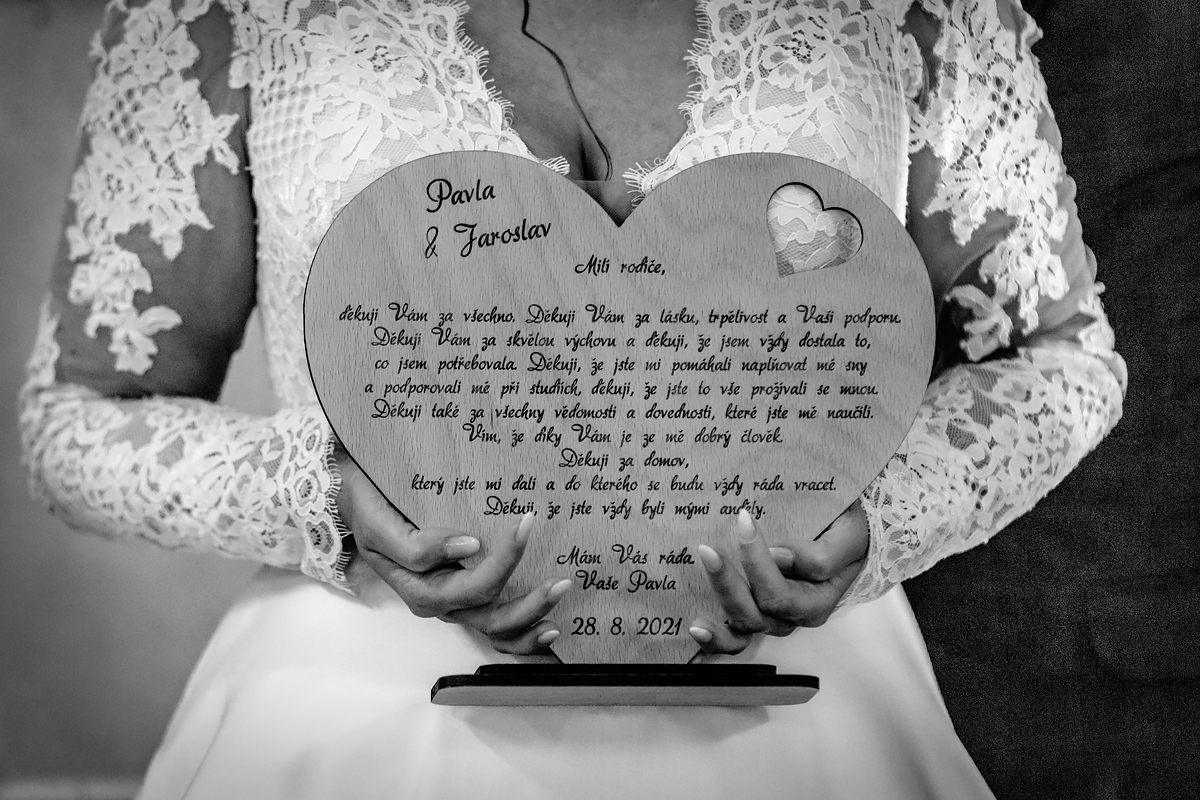 Pavla
& Jaroslav
Milí rodiče,
děkuji Vám za všechno. Děkuji Vám za lásku, trpělivost a Vaši podporu.
Děkuji Vám za skvělou výchovu a děkuji, že jsem vždy dostala to,
co jsem potřebovala. Děkuji, že jste mi pomáhali naplňovat mé sny
a podporovali mě při studiích, děkuji, že jste to vše prožívali se mnou.
Děkuji také za všechny vědomosti a dovednosti, které jste mě naučili.
Vím, že díky Vám je ze mě dobrý člověk.
Děkuji za domov,
který jste mi dali a do kterého se budu vždy ráda vracet.
Děkuji, že jste vždy byli mými anděly.
Mám Vás ráda.
Vaše Pavla
28. 8. 2021